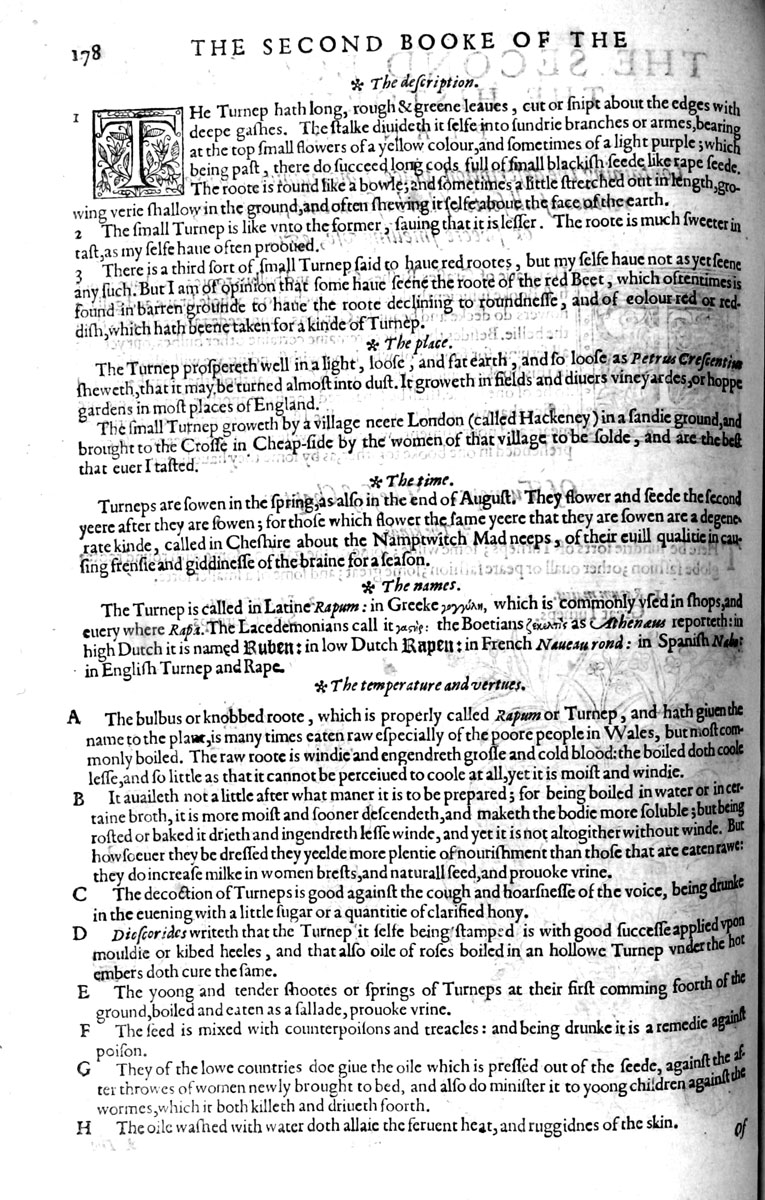 178 THE SECOND BOOKE OF THE
✻ The deſcription.
1 THe Turnep hath long, rough & greene leaues, cut or ſnipt about the edges with
deepe gaſhes. The ſtalke diuideth it ſelfe into ſundrie branches or armes, bearing
at the top ſmall flowers of a yellow colour, and ſometimes of a light purple; which
being paſt, there do ſucceed long cods full of ſmall blackiſh ſeede like rape ſeede.
The roote is round like a bowle; and ſometimes a little ſtretched out in length, gro-
wing verie ſhallow in the ground, and often ſhewing it ſelfe about the face of the earth.
2 The ſmall Turnep is like vnto the former, ſauing that it is leſſer. The roote is much ſweeter in
taſt, as my ſelfe haue often prooued.
3 There is a third ſort of ſmall Turnep ſaid to haue red rootes, but my ſelfe haue not as yet ſeene
any ſuch. But I am of opinion that ſome haue ſeene the roote of the red Beet, which oftentimes is
found in barren grounde to haue the roote declining to roundneſſe, and of colour red or red-
diſh, which hath beene taken for a kinde of Turnep.
✻ The place.
The Turnep proſpereth well in a light, looſe, and fat earth, and ſo looſe as Petrus Creſcentius
ſheweth, that it may be turned almoſt into duſt. It groweth in fields and diuers vineyardes, or hoppe
gardens in moſt places of England.
The ſmall Turnep groweth by a village neere London (called Hackeney) in a ſandie ground, and
brought to the Croſſe in Cheap-ſide by the women of that village to be ſolde, and are the beſt
that euer I taſted.
✻ The time.
Turneps are ſowen in the ſpring, as alſo in the end of Auguſt. They flower and ſeede the ſecond
yeere after they are ſowen; for thoſe which flower the ſame yeere that they are ſowen are a degene-
rate kinde, called in Cheſhire about the Namptwitch Mad neeps, of their euill qualitie in cau-
ſing frenſie and giddineſſe of the braine for a ſeaſon.
✻ The names.
The Turnep is called in Latine Rapum: in Greeke γογγύλη, which is commonly vſed in ſhops, and
euery where Rapa. The Lacedemonians call it the Boetians as Athenæus reporteth: in
high Dutch it is named Ruben: in low Dutch Rapen: in French Naueau rond: in Spaniſh Nabo:
in Engliſh Turnep and Rape.
✻ The temperature and vertues.
A The bulbus or knobbed roote, which is properly called Rapum or Turnep, and hath giuen the
name to the plant, is many times eaten raw eſpecially of the poore people in Wales, but moſt com-
monly boiled. The raw roote is windie and engendreth groſſe and cold blood: the boiled doth coole
leſſe, and ſo little as that it cannot be perceiued to coole at all, yet it is moiſt and windie.
B It auaileth not a little after what maner it is to be prepared; for being boiled in water or in cer-
taine broth, it is more moiſt and ſooner deſcendeth, and maketh the bodie more ſoluble; but being
roſted or baked it drieth and ingendreth leſſe winde, and yet it is not altogither without winde. But
howſoeuer they be dreſſed they yeelde more plentie of nouriſhment than thoſe that are eaten rawe:
they do increaſe milke in women breſts, and naturall ſeed, and prouoke vrine.
C The decoction of Turneps is good againſt the cough and hoarſneſſe of the voice, being drunke
in the euening with a little ſugar or a quantitie of clarified hony.
D Dioſcorides writeth that the Turnep it ſelfe being ſtamped is with good ſucceſſe applied vpon
mouldie or kibed heeles, and that alſo oile of roſes boiled in an hollowe Turnep vnder the hot
embers doth cure the ſame.
E The yoong and tender ſhootes or ſprings of Turneps at their firſt comming foorth of the
ground, boiled and eaten as a ſallade, prouoke vrine.
F The ſeed is mixed with counterpoiſons and treacles: and being drunke it is a remedie againſt
poiſon.
G They of the lowe countries doe giue the oile which is preſſed out of the ſeede, againſt the af-
ter throwes of women newly brought to bed, and alſo do miniſter it to yoong children againſt the
wormes, which it both killeth and driueth foorth.
H The oile waſhed with water doth allaie the feruent heat, and ruggidnes of the skin.
Of